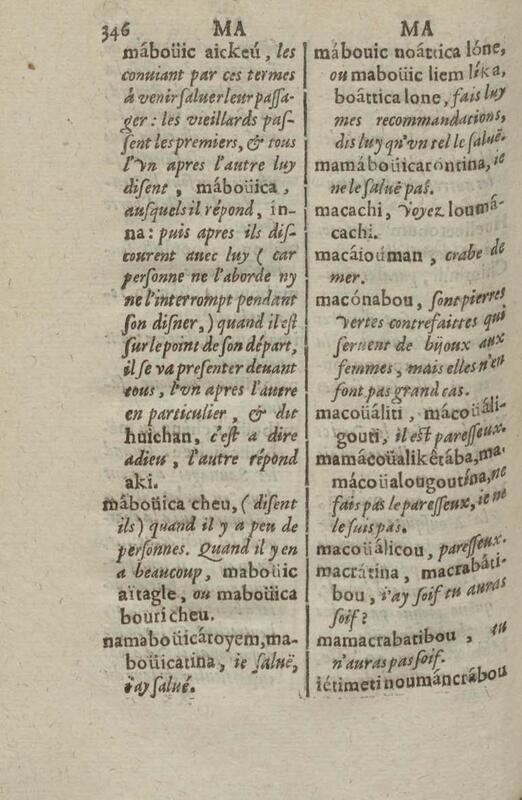 346 MA MA
máboüic aickeú, les
conuiant par ces termes
à venir saluer leur passa-
ger : les vieillards pas-
sent les premiers, & tous
l'vn apres l'autre luy
disent, máboüica,
ausquels il répond, ín-
na: puis apres ils dis-
courent auec luy ( car
personne ne l'aborde ny
ne l'interrompt pendant
son disner, ) quand il est
sur le point de son départ,
il se va presenter deuant
tous, l'vn apres l'autre
en particulier, & dit
huichan, c'est a dire
adieu, l'autre répond
aki.
máboüica cheu, ( disent
ils ) quand il y a peu de
personnes. Quand il y en
a beaucoup, maboüic
aïtagle, ou maboüica
bouricheu.
namaboüicároyem, ma-
boüicatina, ie saluë,
i'ay salué.
mábouic noáttica lóne,
ou maboüic liem líka,
boáttica lone, fais luy
mes recommandations,
dis luy qu'vn tel le saluë.
mamáboüicarontina, ie
ne le saluë pas.
macachi, voyez loumá-
cachi.
macáiouman, crabe de
mer.
macónabou, sont pierres
vertes contrefaittes qui
seruent de bijoux aux
femmes, mais elles n'en
font pas grand cas.
macoüáliti, mácoüáli-
gouti, il est paresseux.
mamácoüalikêtába, ma-
mácoüalougoutína, ne
fais pas le paresseux, ie ne
le suis pas.
macoüálicou, paresseux.
macrátina, macrabáti-
bou, i'ay soif tu auras
soif?
mamacrabatibou, tu
n'auras pas soif.
iétimetinoumáncrábou